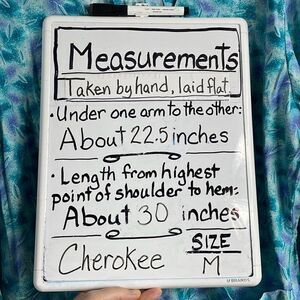 Measurements
Taken by hand, laid flat.
• Under one arm to the other:
About 22.5 inches
• Length from highest
point of shoulder to hem:
About 30 inches
Cherokee
SIZE
M
U BRANDS